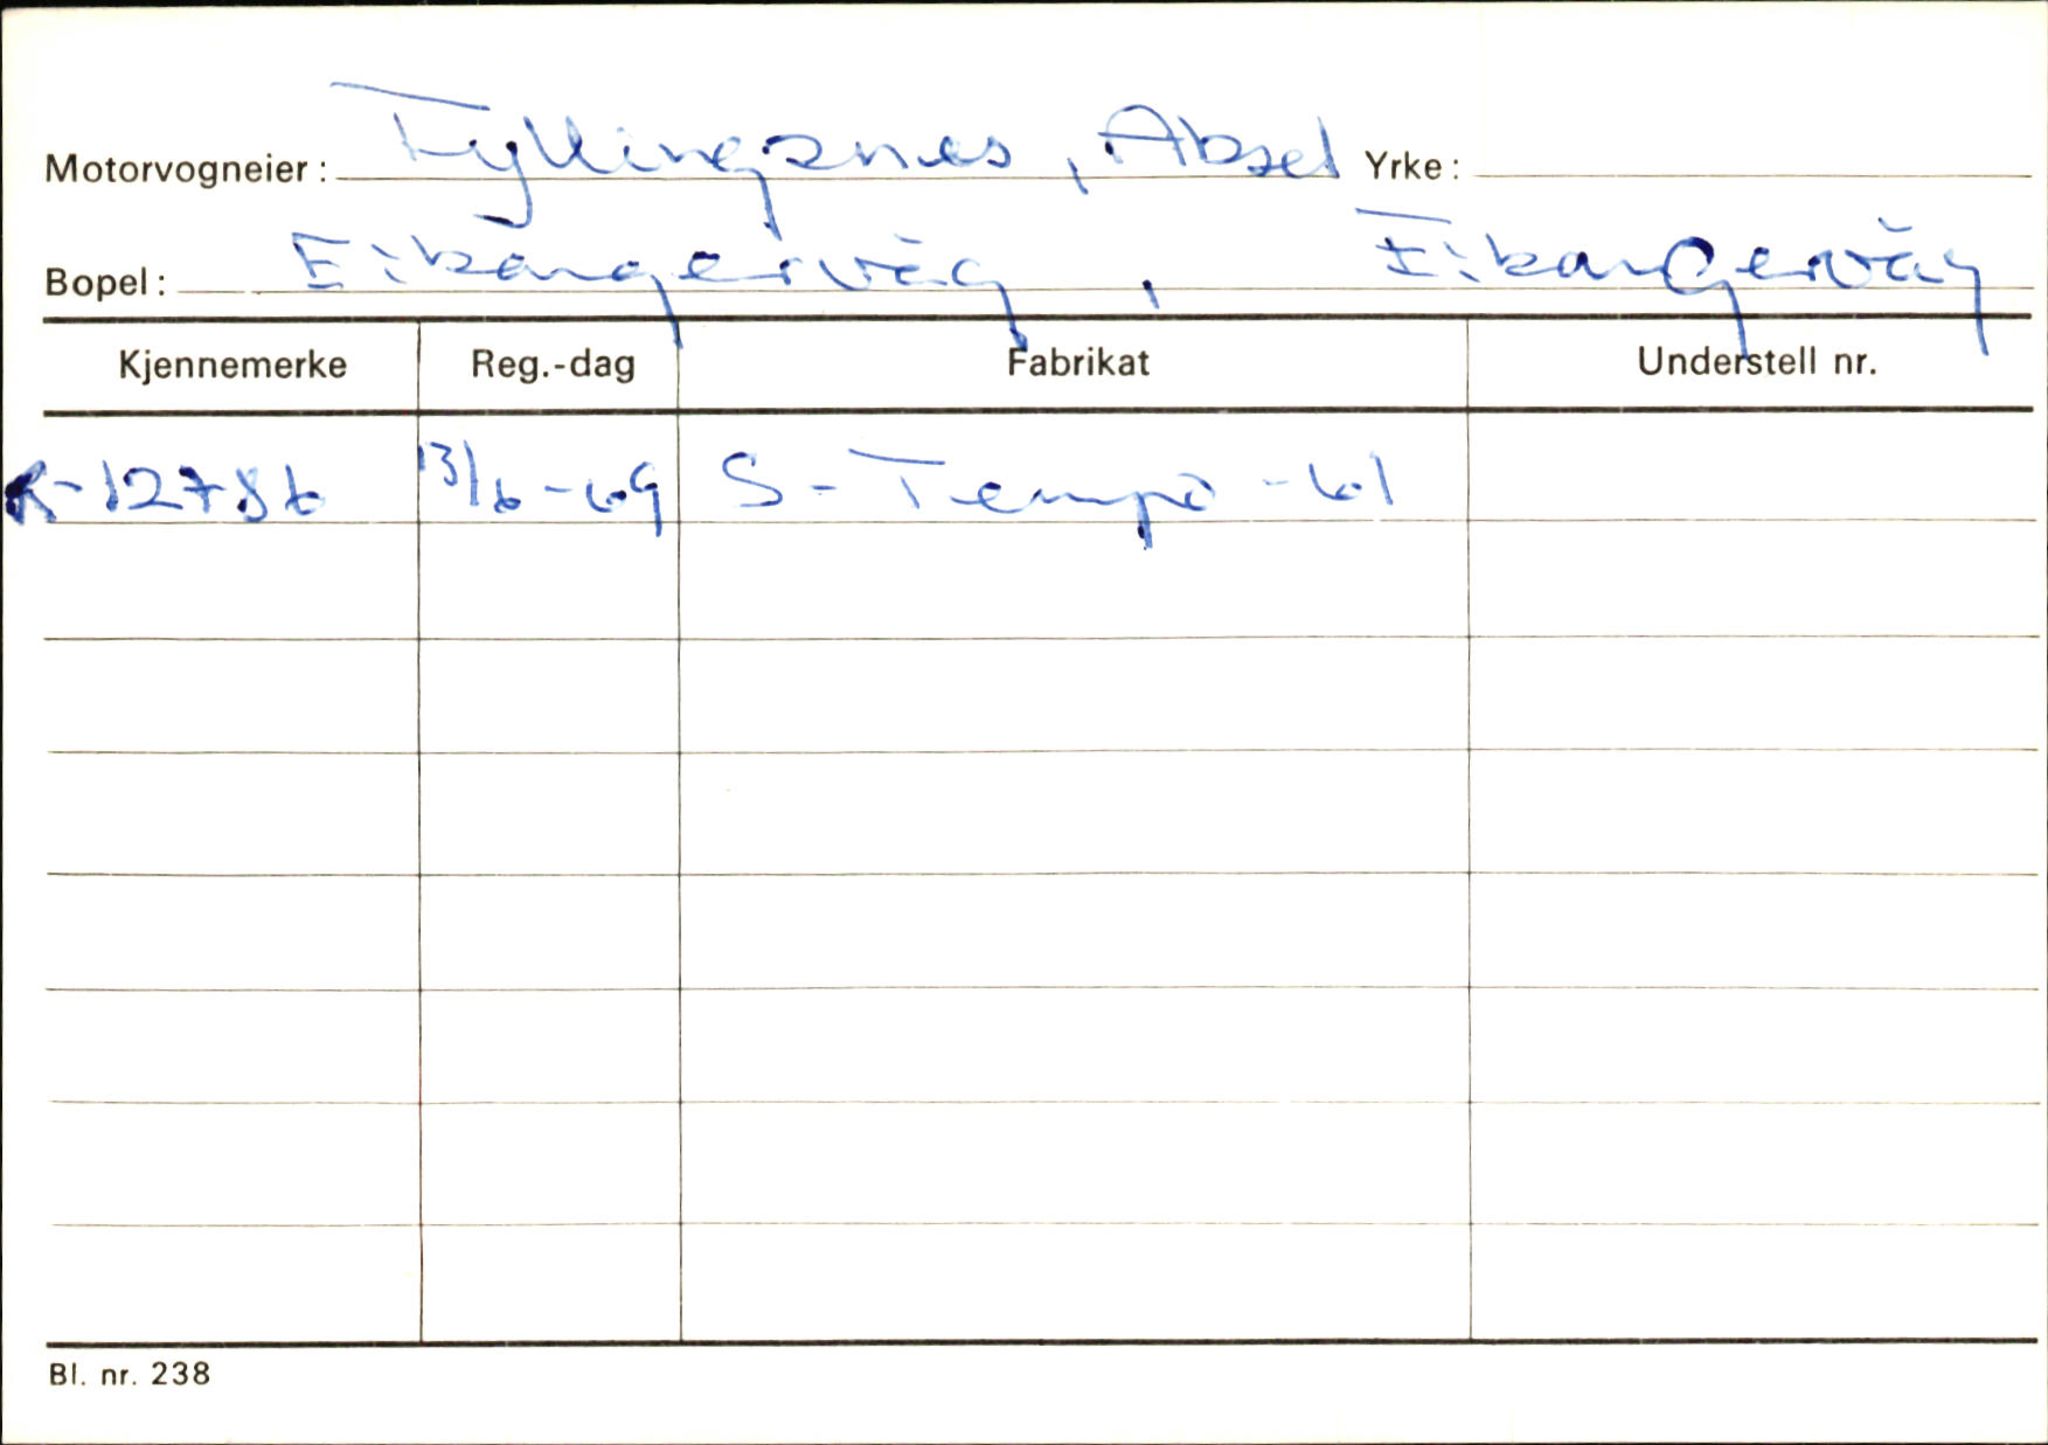 Motorvogneier: Fyllingsnes, Aksel Yrke:
Bopel: Eikangervåg, Eikangervåg
Kjennemerke Reg.-dag Fabrikat Understell nr.
R-12786 13/6-69 S-Tempo-61
Bl. nr. 238